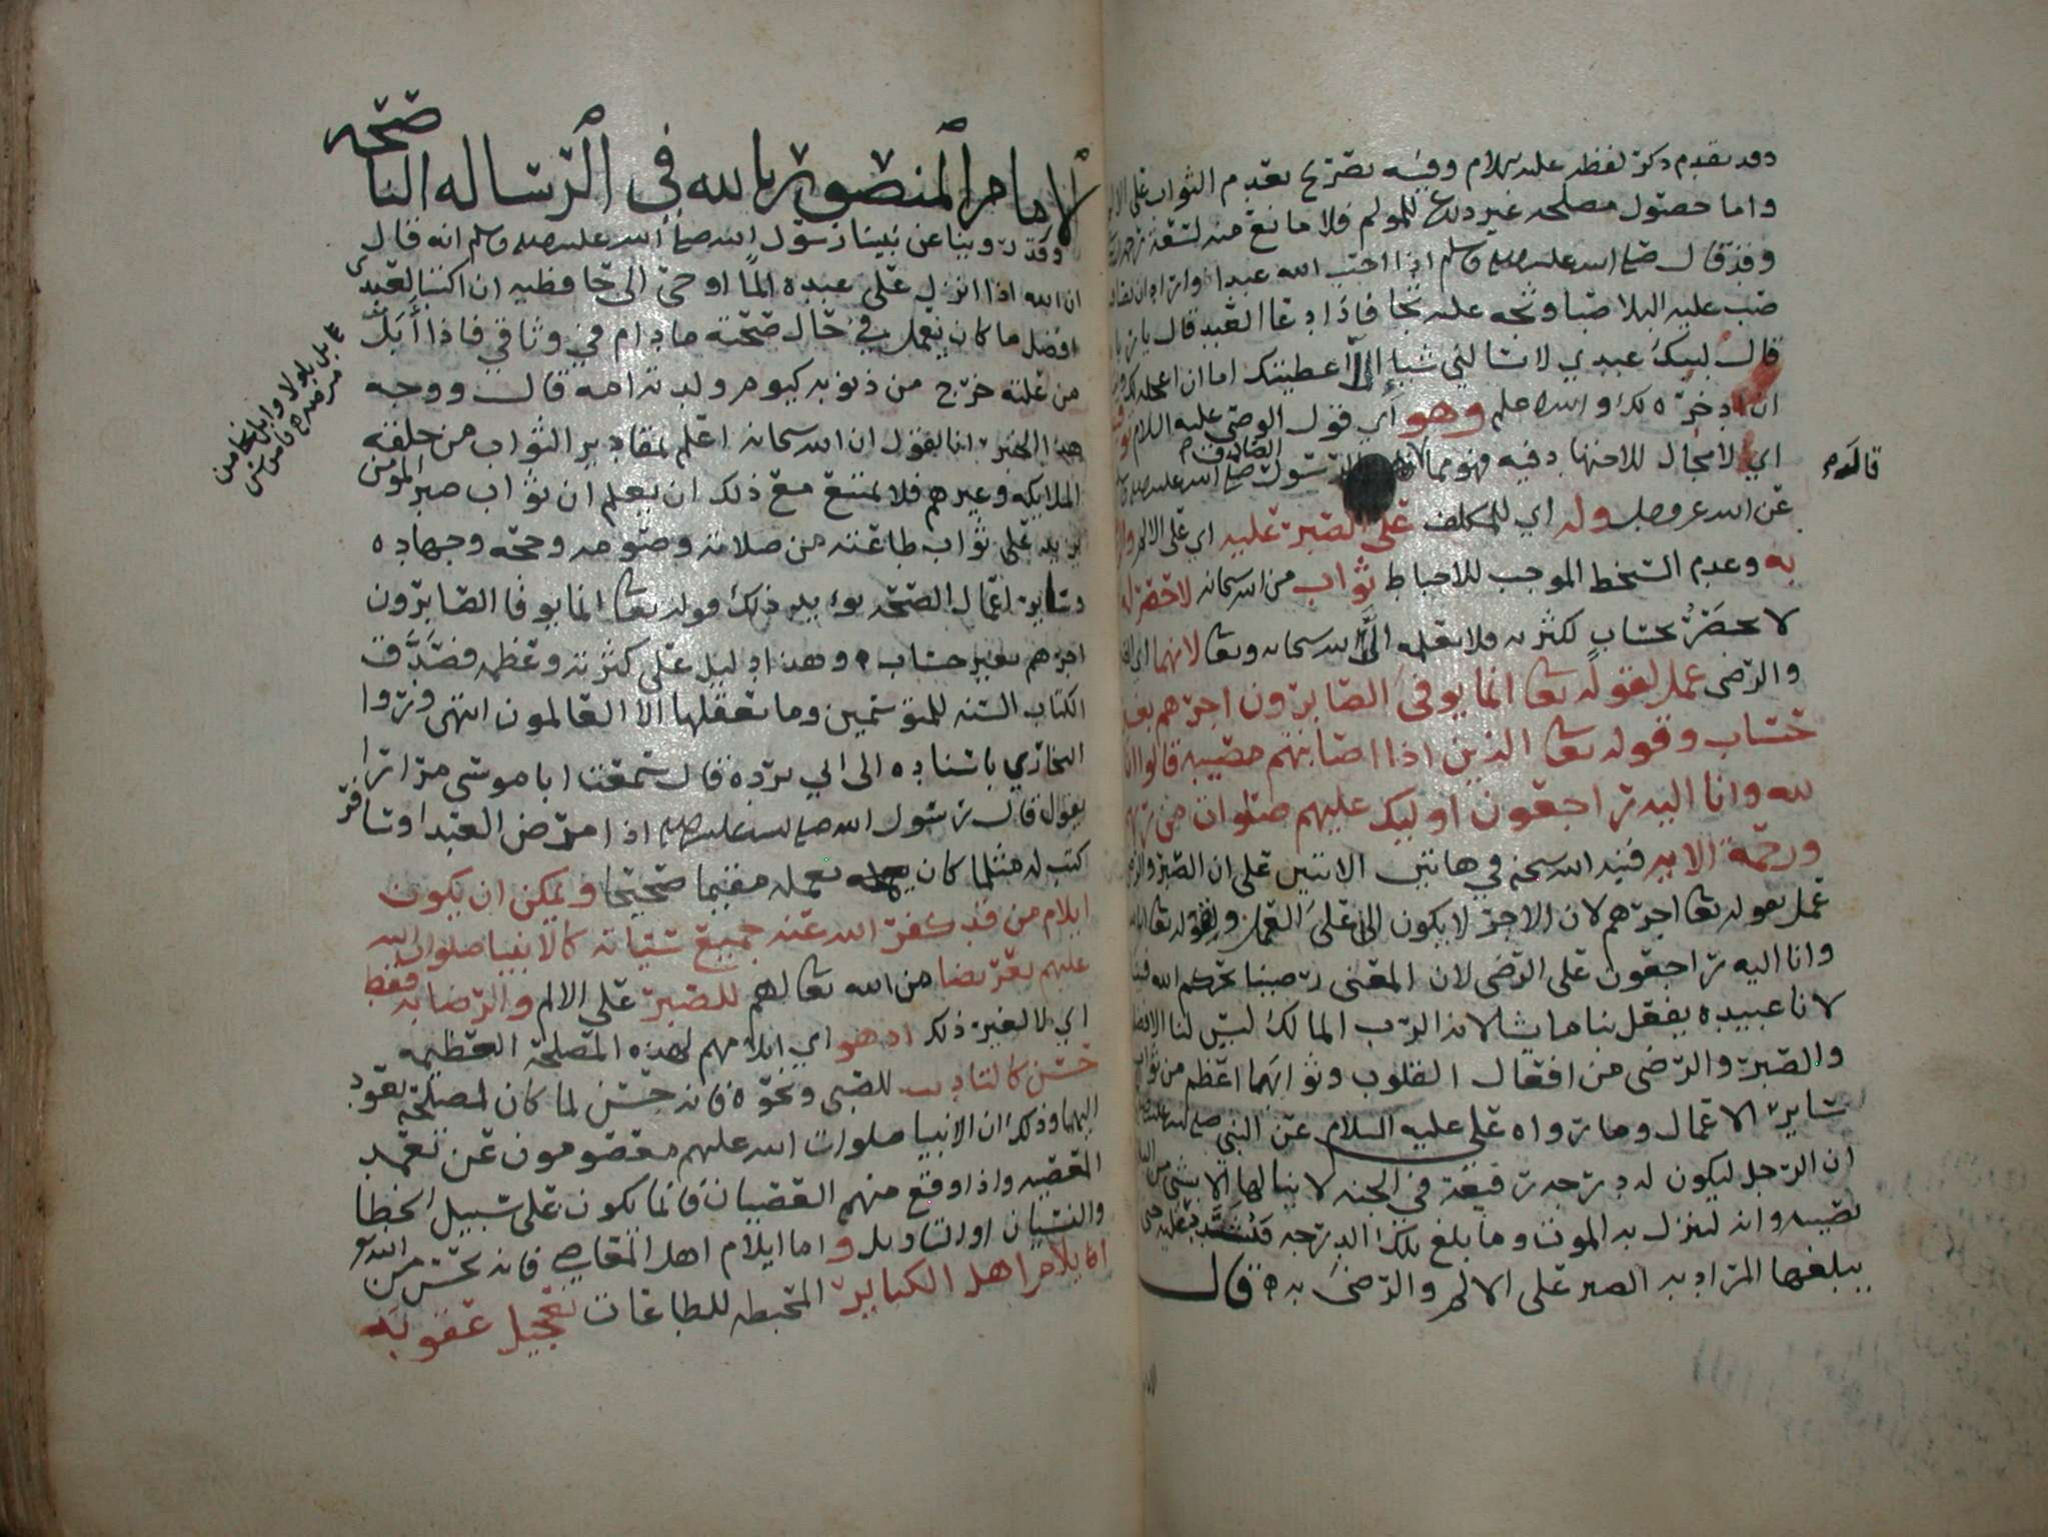 وقد تقدم ذكر لفظه عليه السلام وفيه تصريح بعدم الثواب على الا
واما حصول مصلحة غير دفع للمولم فلا مانع منه لسعة
وقد قال صلى الله عليه واله وسلم اذا احب الله عبدا واراد ان
صب عليه البلا صبا وثجه عليه ثجا فاذا دعا العبد قال يا
قال لبيك عبدي لا تسالني شيا الا اعطيتك اما ان اعجله لك
ان ادخره لك والله اعلم وهو اي قول الوصي عليه السلام
اي لا مجال للاجتهاد فيه فهو مما الرسول صلى الله عليه
الصادق
قالدم
عن الله عز وجل وله اي للمكلف على الصبر عليه اي على الالم
به وعدم السخط الموجب للاحباط ثواب من الله سبحانه لا حصر له
لا يحصر بحساب لكثرته ولا يعلمه الا الله سبحانه وتعالى لانهما
والرضى عمل لقوله تعالى انما يوفى الصابرون اجرهم بغير
حساب وقوله تعالى الذين اذا اصابتهم مصيبة قالوا انا
لله وانا اليه راجعون اوليك عليهم صلوات من ربهم
ورحمة الايه فنبه الله سبحنه في هاتين الايتين على ان الصبر
عمل بقوله تعالى اجرهم لان الاجر لا يكون الا على العمل وبقوله تعالى
وانا اليه راجعون على الرضى لان المعنى رضينا بحكم الله فينا
لانا عبيده يفعل بنا ما يشا لانه الرب المالك ليس لنا الا
والصبر والرضى من افعال القلوب وثوابهما اعظم من ثواب
ساير الاعمال وما رواه علي عليه السلام عن النبي صلى الله عليه
ان الرجل ليكون له درجة رفيعة في الجنه لا ينالها الا بشي من
تصيبه وانه لينزل به الموت وما بلغ تلك الدرجه فيشدد عليه حتى
يبلغها المراد به الصبر على الالم والرضى به ه قال
الامام المنصور بالله في الرساله الناصحه
وقد روينا عن نبينا رسول الله صلى الله عليه واله وسلم انه قال
ان الله اذا انزل على عبده الما اوحى الى حافظيه ان اكتبا لعبدي
افضل ما كان يعمل في حال صحته ما دام في وثاقي فاذا أبَلَّ
من علته خرج من ذنوبه كيوم ولدته امه قال ووجه
هذا الخبر انا نقول ان الله سبحانه اعلم بمقادير الثواب من خلقه
الملايكه وغيرهم فلا يمتنع مع ذلك ان يعلم ان ثواب صبر المومن
يزيد على ثواب طاعته من صلاته وصومه وحجه وجهاده
وساير اعمال الصحه يويد ذلك قوله تعالى انما يوفا الصابرون
اجرهم بغير حساب ه وهذا دليل على كثرته وعظمه فصدق
الكتاب السنه للمتوسمين وما يعقلها الا العالمون انتهى وروا
البخاري باسناده الى ابي برده قال سمعت ابا موسى مرارا
يقول قال رسول الله صلى الله عليه واله اذا مرض العبد او سافر
كتب له مثلما كان يعمله مقيما صحيحا ويمكن ان يكون
ايلام من قد كفر الله عنه جميع سياته كالانبيا صلوات الله
عليهم تعريضا من الله تعالى لهم للصبر على الالم والرضا به فقط
اي لا لغير ذلك اذ هو اي ايلامهم لهذه المصلحة العظيمه
حسن كالتاديب للصبي ونحوه فانه حسن لما كان لمصلحة تعود
اليهما وذلك ان الانبيا صلوات الله عليهم معصومون عن تعمد
المعصيه واذا وقع منهم العصيان فانما يكون على سبيل الخطا
والنسيان او التاويل واما ايلام اهل المعاصي فانه يحسن من الله
ايلام اهل الكباير المحبطه للطاعات تعجيل عقوبة